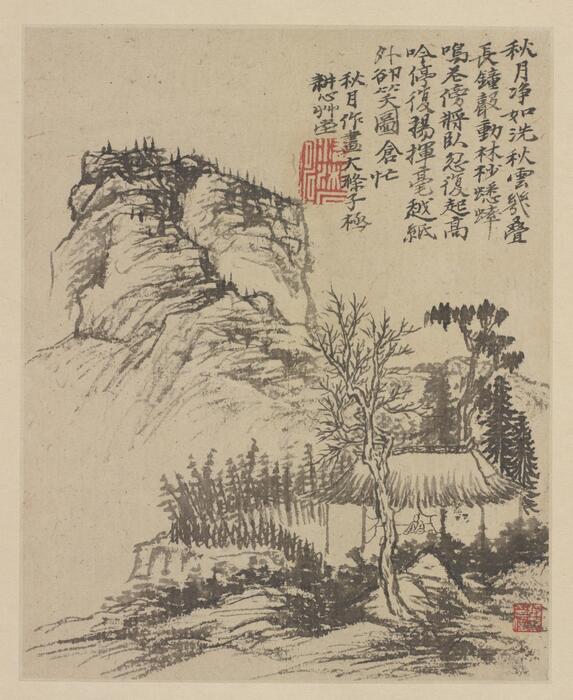 秋月净如洗秋雲幾疊
長鐘聲動林杪蟋蟀
鳴巷傍將臥忽復起高
吟停復揚揮毫越紙
外卻笑圖倉忙
秋月作畫大滌子極
耕心艸堂